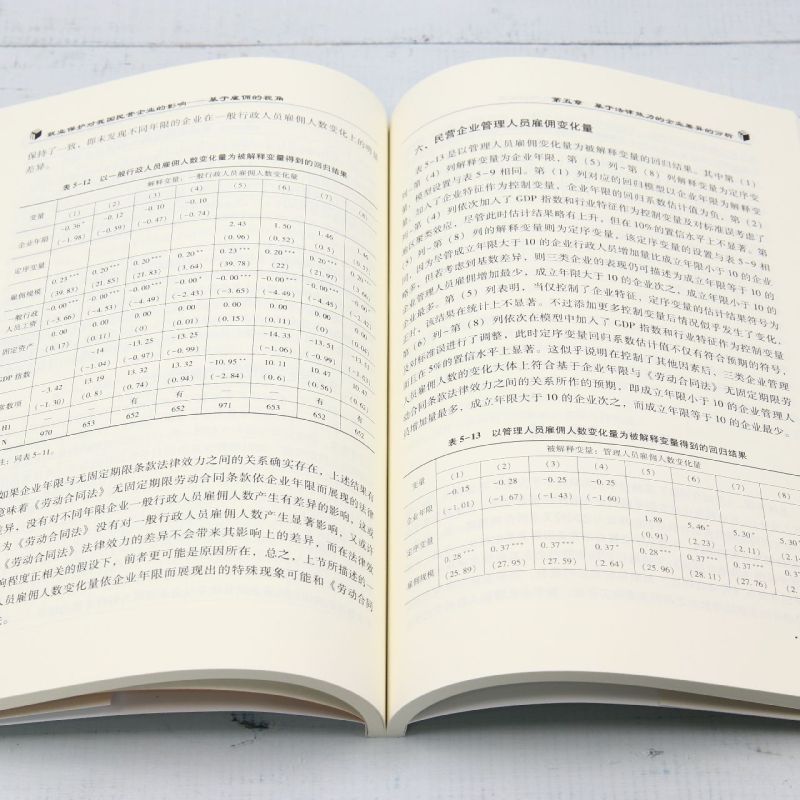 就业保护对我国民营企业的影响——基于雇佣的视角
保持了一致，即未发现不同年限的企业在一般行政人员雇佣人数变化上的明显
差异。
表 5-12 以一般行政人员雇佣人数变化量为被解释变量得到的回归结果
解释变量：一般行政人员雇佣人数变化量
变量 (1) (2) (3) (4) (5) (6) (7) (8)
企业年限 -0.36* -0.12 -0.10 -0.10
(-1.98) (-0.59) (-0.47) (-0.74)
定序变量 2.43 1.50 1.46
(0.96) (0.52) (0.5)
雇佣规模 0.23*** 0.20*** 0.20*** 0.20** 0.23*** 0.20*** 0.20***
(39.83) (21.85) (21.83) (3.64) (39.78) (22) (21.97)
一般行政 -0.00*** -0.00*** -0.00*** -0.00* -0.00*** -0.00*** -0.00***
人员工资 (-3.66) (-4.53) (-4.49) (-2.43) (-3.65) (-4.49) (-4.45)
固定资产 0.00 0.00 0.00 0.00 0.00 0.00 0.00
(0.17) (0.11) (0) (0.01) (0.15) (0.11) (0)
GDP 指数 -14 -13.25 -13.25 -14.33 -13.51
(-1.04) (-0.97) (-0.99) (-1.06) (-0.99)
常数项 -3.42 13.19 13.32 13.32 -10.95** 10.11 10.47
(-1.30) (0.8) (0.74) (0.94) (-2.84) (0.6) (0.56)
N 970 653 652 652 971 653 652 652
注：同表 5-11。
如果企业年限与无固定期限条款法律效力之间的关系确实存在，上述结果有
意味着《劳动合同法》无固定期限劳动合同条款依企业年限而展现的法律
差异，没有对不同年限企业一般行政人员雇佣人数产生有差异的影响，这或
为《劳动合同法》没有对一般行政人员雇佣人数产生显著影响，又或许
《劳动合同法》法律效力的差异不会带来其影响上的差异，而在法律效
响程度正相关的假设下，前者更可能是原因所在，总之，上节所描述的一
人员雇佣人数变化量依企业年限而展现出的特殊现象可能和《劳动合同
第五章 基于法律效力的企业差异的分析
六、民营企业管理人员雇佣变化量
表 5-13 是以管理人员雇佣变化量为被解释变量的回归结果。其中第（1）
列~第（4）列解释变量为企业年限，第（5）列~第（8）列解释变量为定序变
量，模型设置与表 5-9 相同。第（1）列对应的回归模型以企业年限为解释变
量，加入了企业特征作为控制变量，企业年限的回归系数估计值为负，第（2）
列~第（4）列依次加入了 GDP 指数和行业特征作为控制变量及对标准误考虑了
地区聚类效应，尽管此时估计结果略有上升，但在 10%的置信水平上不显著。第
（5）列~第（8）列的解释变量则为定序变量，该定序变量的设置与表 5-9 相
同，因为尽管成立年限大于 10 的企业行政人员增加量比成立年限小于 10 的企业
略多，但若考虑到基数差异，则三类企业的表现仍可描述为成立年限等于 10 的
企业管理人员雇佣增加最少，成立年限大于 10 的企业次之，成立年限小于 10 的
企业最多。第（5）列表明，当仅控制了企业特征，定序变量的估计结果符号为
正时，该结果在统计上不显著。不过添加更多控制变量后情况似乎发生了变化，
第（6）列~第（8）列依次在模型中加入了 GDP 指数和行业特征作为控制变量
及对标准误进行了调整，此时定序变量回归系数估计值不仅有符合预期的符号，
而且在 5%的置信水平上显著。这似乎说明在控制了其他因素后，三类企业管理
人员雇佣人数的变化大体上符合基于企业年限与《劳动合同法》无固定期限劳
动合同条款法律效力之间的关系所作的预期，即成立年限小于 10 的企业管理人
员增加量最多，成立年限大于 10 的企业次之，而成立年限等于 10 的企业最少。
表 5-13 以管理人员雇佣人数变化量为被解释变量得到的回归结果
被解释变量：管理人员雇佣人数变化量
变量 (1) (2) (3) (4) (5) (6) (7) (8)
企业年限 -0.15 -0.28 -0.25 -0.25
(-1.01) (-1.67) (-1.43) (-1.60)
定序变量 1.89 5.46* 5.30* 5.30
(0.91) (2.23) (2.11) (2.14
雇佣规模 0.28*** 0.37*** 0.37*** 0.37* 0.28*** 0.37*** 0.37*** 0.37
(25.89) (27.95) (27.59) (2.64) (25.96) (28.11) (27.76) (2.6